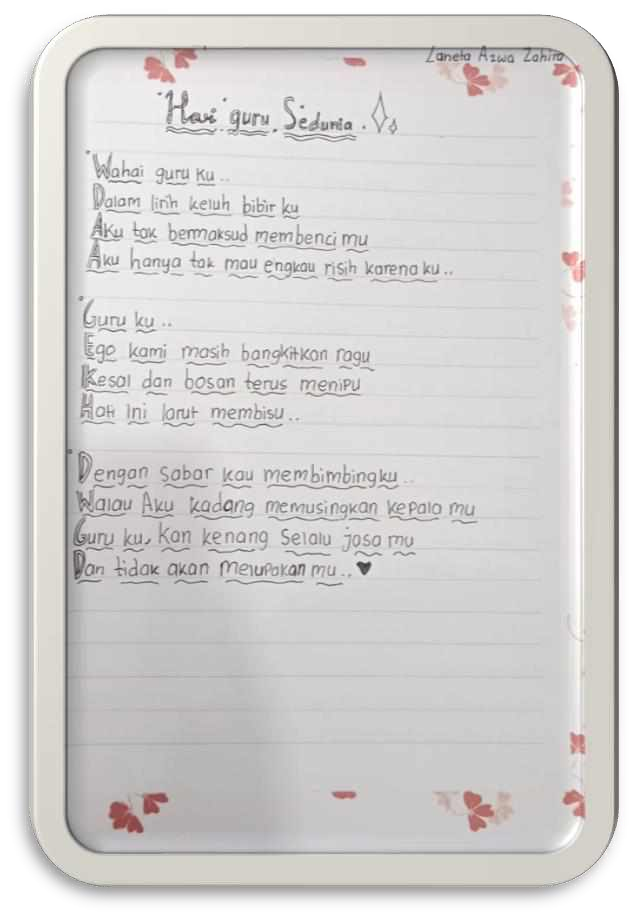 Laneta Azwa Zahira
"Hari" guru Sedunia.
Wahai guru ku..
Dalam lirih keluh bibir ku
Aku tak bermaksud membenci mu
Aku hanya tak mau engkau risih karena ku..
Guru ku..
Ego kami masih bangkitkan ragu
Kesal dan bosan terus menipu
Hati Ini larut membisu..
Dengan sabar kau membimbingku..
Walau Aku kadang memusingkan kepala mu
Guru ku, Kan kenang Selalu jasa mu
Dan tidak akan melupakan mu..